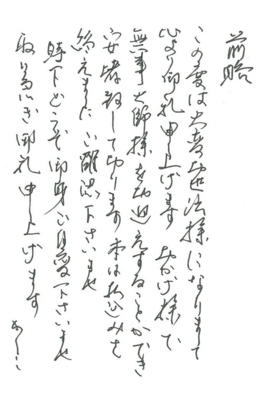 前略
この度は大変お世話様になりまして
心より御礼申し上げます おかげ様で
無事大師様をお迎えすることができ
安堵致して居ります 払込みを
終えました ご確認下さいませ
時下どうぞ御身ご自愛下さいませ
取り急ぎ御礼申し上げます かしこ